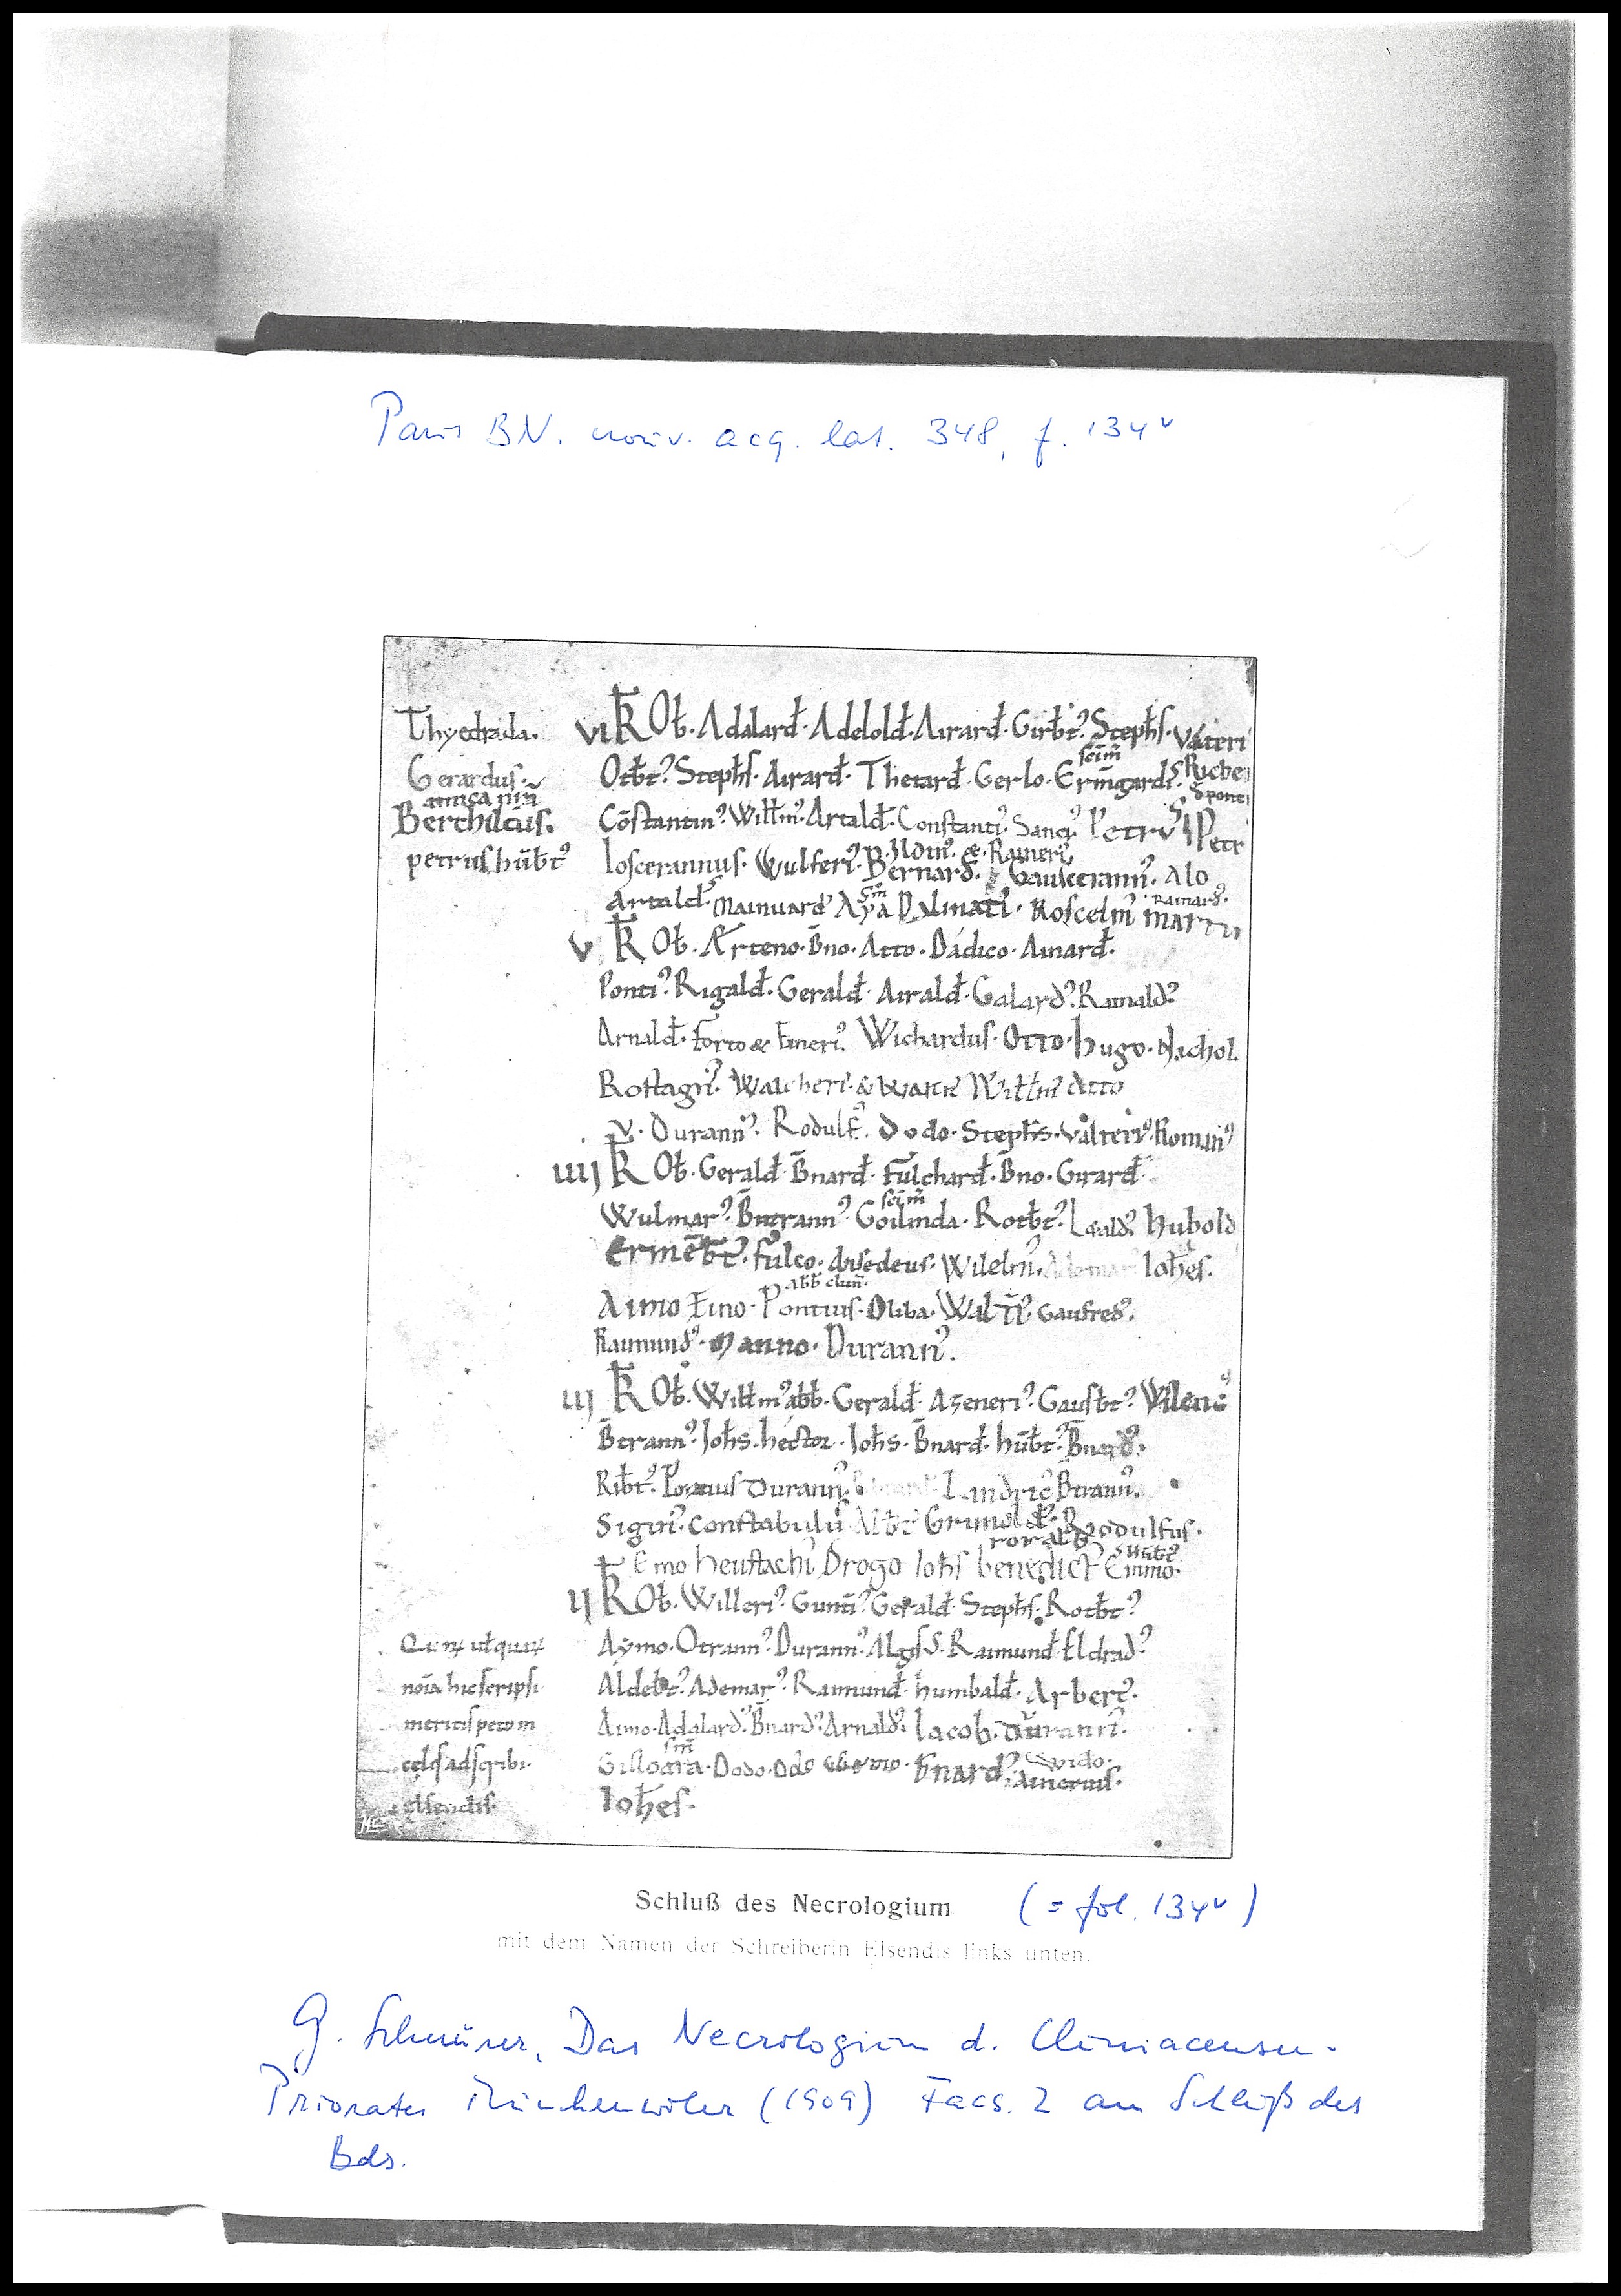 Paris BN. nouv. acq. lat. 348, f. 134v
Thyedrada.
Gerardus.
amica nr̄a
Berchildis.
petrus hūbt᾽
VI k̄ Ob̄. Adalard̄. Adelold̄. Airard̄. Girb̄t᾽. Steph̄s. Valteri
Otb̄t᾽. Steph̄s. Airard̄. Thetard̄. Gerlo. Erm̄gardis Riche
Cōstantin᾽. Will̄m᾽. Artald̄. Constanti᾽. Sanci᾽. Petru᾽ Petr
Joscerannus. Wulferi᾽. Bernard᾽. Gauscerann᾽. Alo
Artald᾽. Mainuard᾽ Aya Dalmati᾽. Roscelin᾽ Martin
V k̄ Ob̄. Arteno. B̄no. Atto. Dadico. Ainard̄.
Ponti᾽. Rigald̄. Gerald̄. Airald̄. Galard᾽. Rainald᾽.
Arnald̄. Forto & Emeri᾽. Wichardus. Otto. hugo. Nichol.
Rostagn᾽. Walcheri᾽. Will̄m᾽ Atto
V. Durann᾽. Rodulf᾽. Dodo. Steph̄s. Valteri᾽. Roman᾽
IIII k̄ Ob̄. Gerald̄ B̄nard̄. Fulchard̄. B̄no. Girard̄
Wulmar᾽. B̄trann᾽. Goilinda. Rotb̄t᾽. Leald᾽. Hubold
Ermēb̄t᾽. Fulco. Amedeus. Wilelm᾽. Ademar Joh̄es.
abb̄ clun̄.
Aimo Eino. Pontius. Oliba. Walt᾽. Gaufred᾽.
Raimund᾽. Manno. Durann᾽.
III k̄ Ob̄. Will̄m᾽ abb̄. Gerald̄. Azeneri᾽. Gausb̄t᾽. Wilenc᾽
B̄trann᾽. Joh̄s. hector. Joh̄s. B̄nard̄. hūb̄t᾽. B̄nard᾽.
Rib̄t᾽. Pontius Durann᾽. Landric᾽ B̄trann᾽.
Siguin᾽. Constabulus Alb̄t᾽ Grimold᾽. Rodulfus.
Emo heustachi᾽ Drogo Joh̄s benedict᾽ Emmo.
II k̄ Ob̄. Willeri᾽. Gunti᾽. Gerald̄. Steph̄s. Rotb̄t᾽
Aymo. Otrann᾽. Durann᾽. Algis. Raimund̄ Eldrad᾽.
Aldeb̄t᾽. Ademar᾽. Raimund̄. humbald̄. Arbert᾽.
Aimo. Adalard᾽. B̄nard᾽. Arnald᾽. Jacob. Durann᾽.
Dodo. Odo B̄nard᾽. Wido. Aimericus.
Joh̄es.
noīa hic scripsi
meritis peto m
celis adscribi.
elsendis.
Schluß des Necrologium (= fol. 134v)
mit dem Namen der Schreiberin Elsendis links unten.
G. Schnürer, Das Necrologium d. Cluniacenser-
Priorates Münchenwiler (1909) Facs. 2 am Schluß des
Bds.